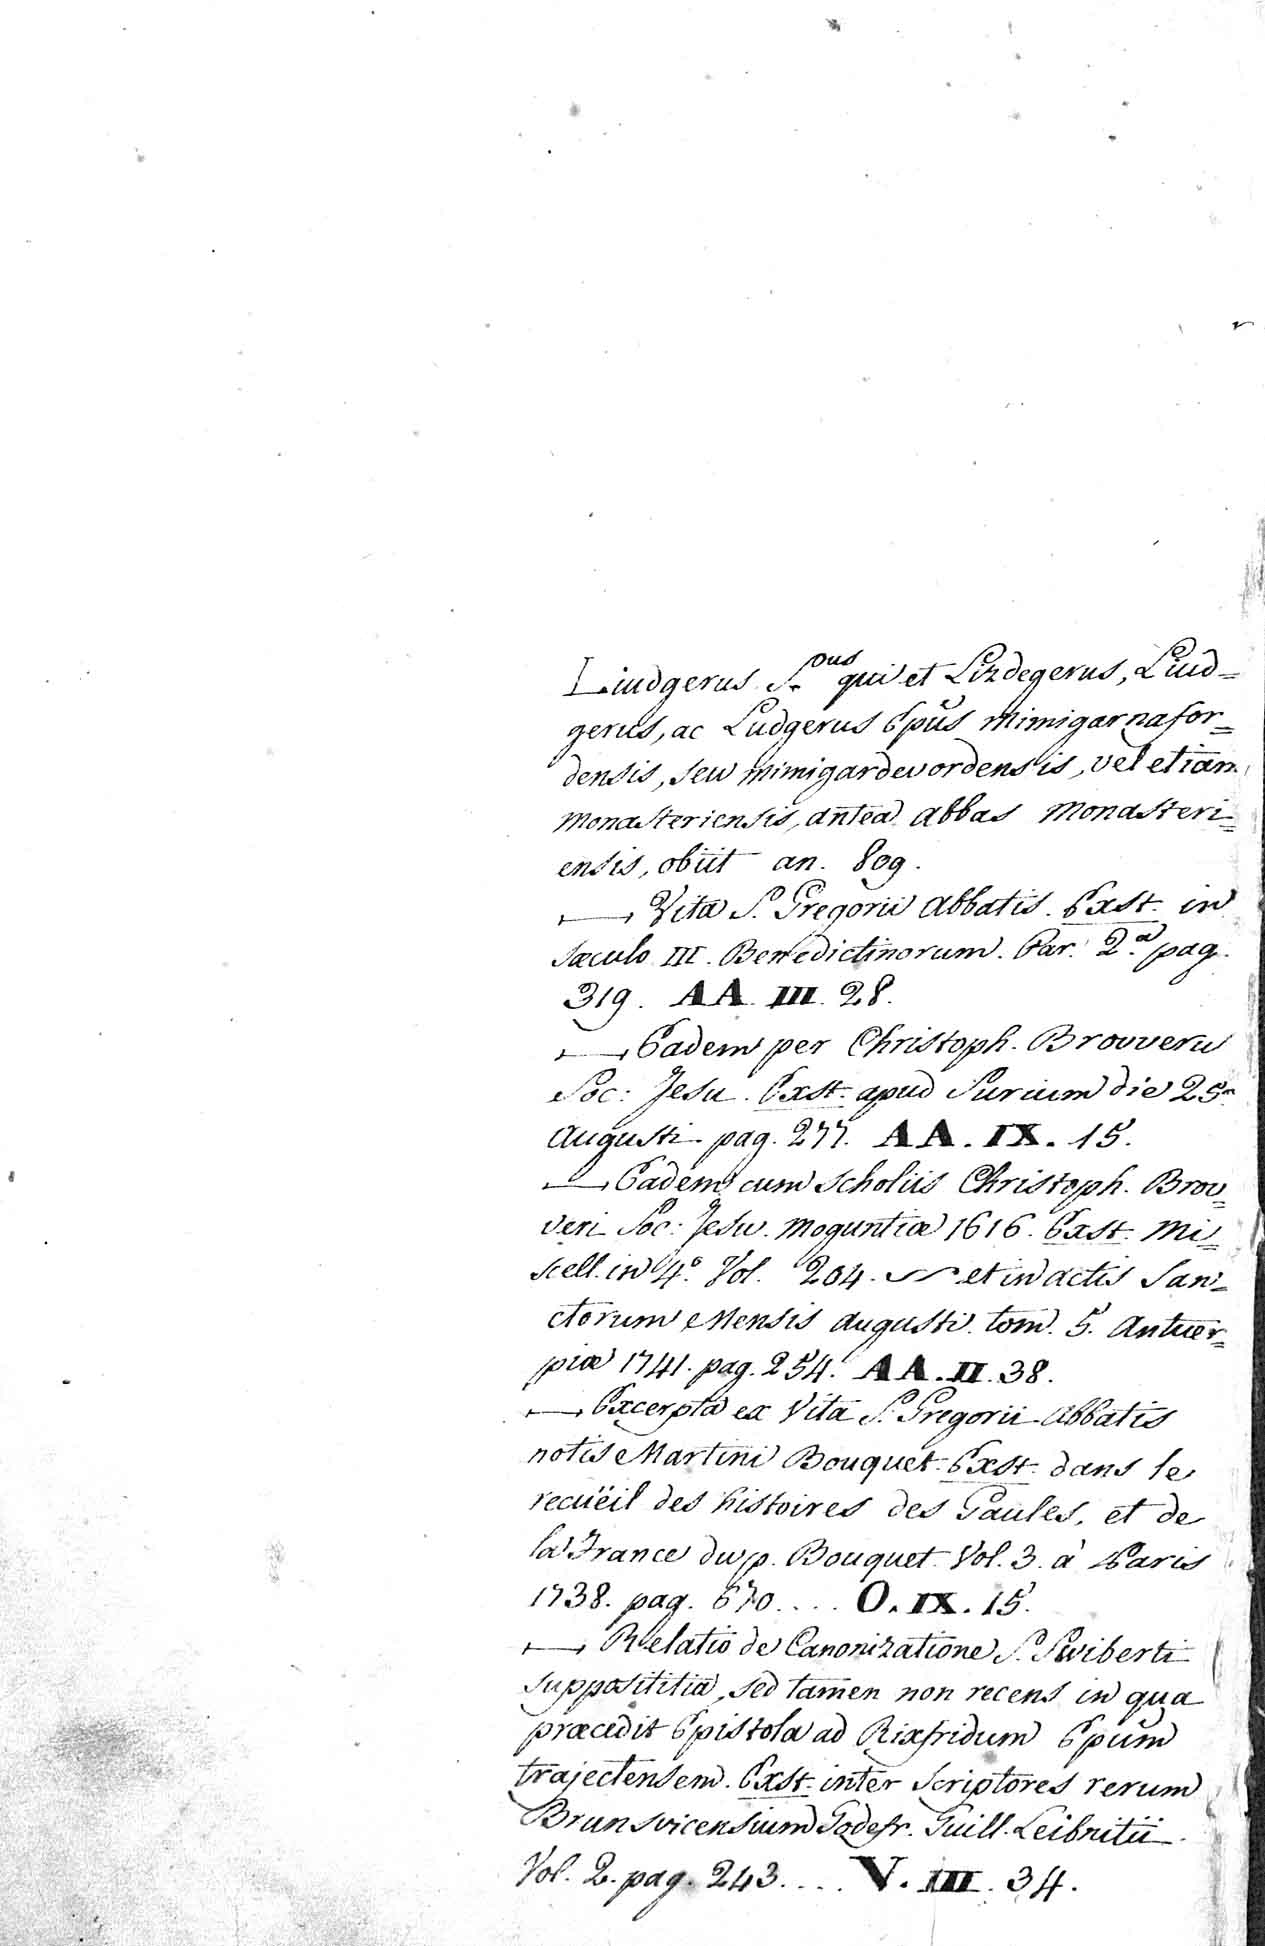 Liudgerus S.ᵒᵘˢ qui et Lizdegerus, Liud=
gerus, ac Ludgerus Epus̃ Mimigarnafor=
densis, seu Mimigardevordensis, vel etiam
Monasteriensis, antea Abbas Monasteri=
ensis, obiit an. 809.
— Vita S. Gregorii Abbatis. Exst. in
sæculo III. Benedictinorum. Par. 2.ᵃ pag.
319. AA. III. 28.
— Eadem per Christoph. Brovveru
Soc: Jesu. Exst. apud Surium die 25.
Augusti pag. 277. AA. IX. 15.
— Eadem cum scholiis Christoph. Brov=
veri Soc: Jesu. Moguntiæ 1616. Exst. Mi=
scell. in 4.° Vol. 204. — et in actis San=
ctorum Mensis Augusti. tom. 5. Antuer=
piæ 1741. pag. 254. AA. II. 38.
— Excerpta ex Vita S. Gregorii Abbatis
notis Martini Bouquet. Exst. dans le
recüeil des histoires des Gaules, et de
la France du p. Bouquet. Vol. 3. à Paris
1738. pag. 670.... O. IX. 15.
— Relatio de Canonizatione S. Swiberti
supposititia, sed tamen non recens in qua
præcedit Epistola ad Rixfridum Epum̃
trajectensem. Exst. inter scriptores rerum
Brunsvicensium Godefr. Guill. Leibnitii
Vol. 2. pag. 243.... V. III. 34.